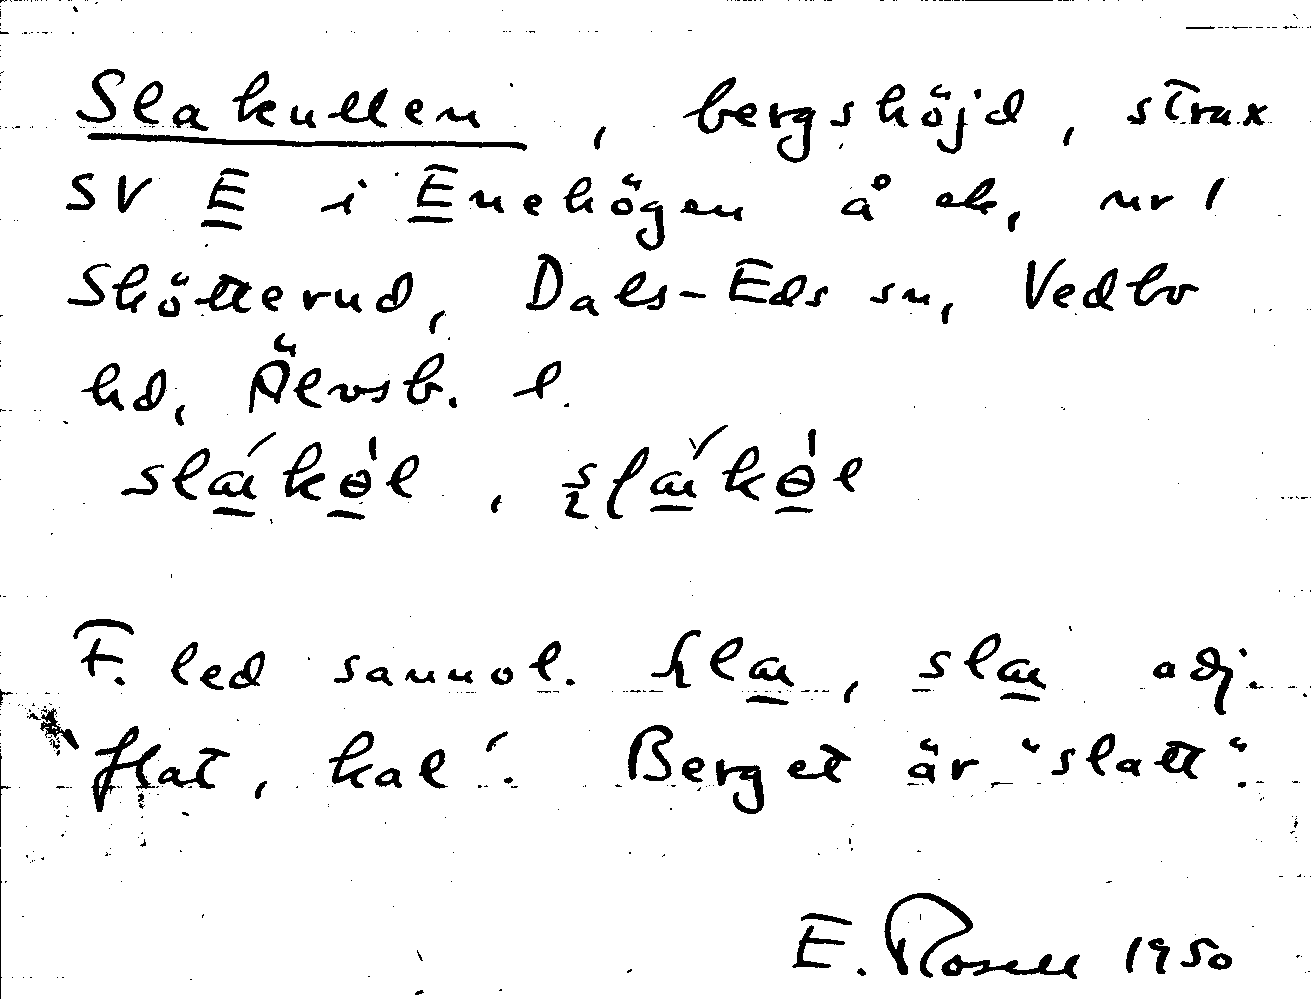 Slakullen, bergshöjd, strax
SV E i Enehögen å ek, nr 1
Skötterud, Dals-Eds sn, Vedbo
hd, Älvsb. l.
F. led sannol. sla, sla adj.
'flat, kal'. Berget är "slatt".
E. Rosell 1950